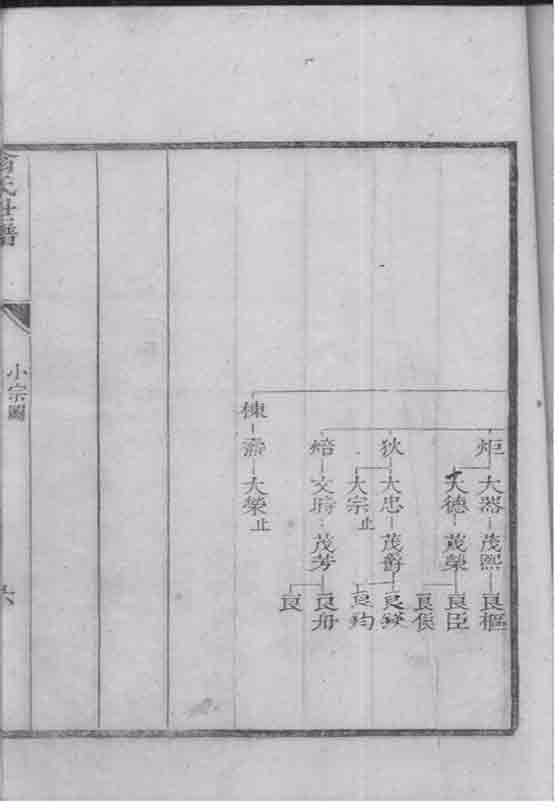 炬
大器 茂熙 良樞
大德 茂榮 良臣
良俟
狄
大忠 茂爵 良鍈
大宗止 良鈞
焙
文時 茂芳 良舟
良
棟
大榮止
氏世譜
小宗圖
六